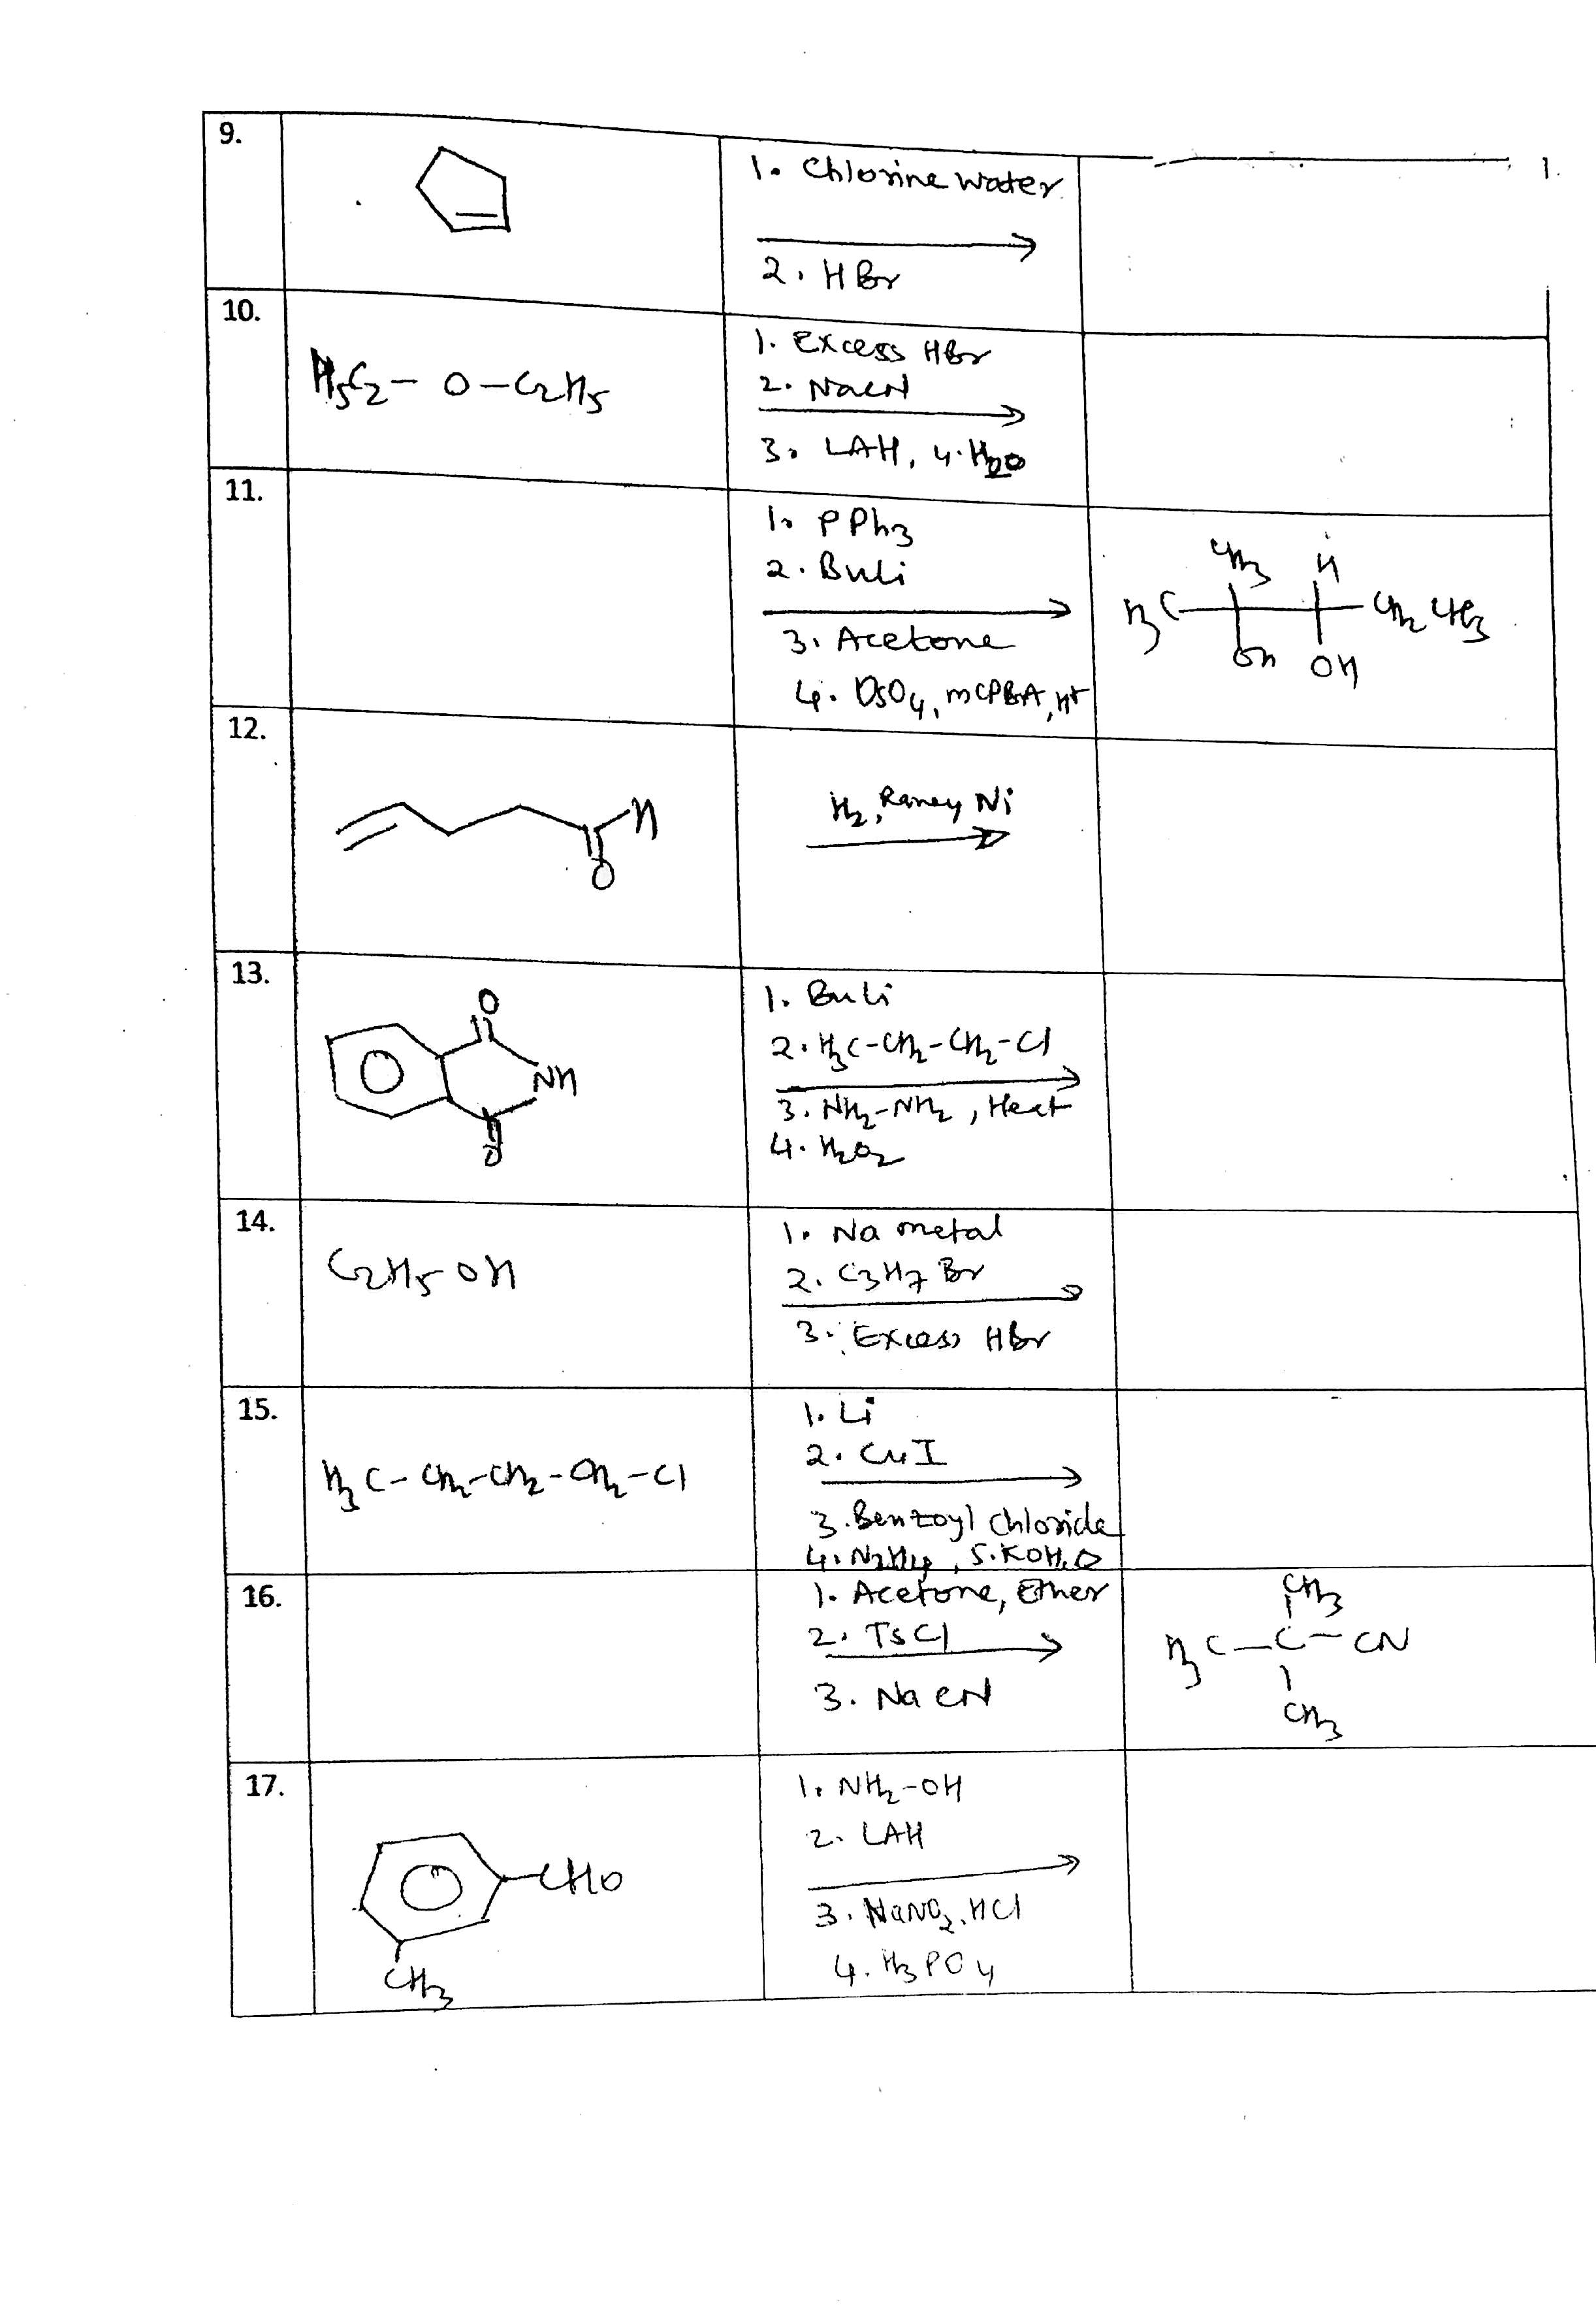 9.
1. Chlorine water
2. HBr
10.
H5C2 - O - C2H5
1. Excess HBr
2. NaCN
3. LAH, 4. H2O
11.
1. PPh3
2. BuLi
3. Acetone
4. OsO4, mCPBA, H+
CH3 H
H3C CH2CH3
OH OH
12.
H
O
H2, Raney Ni
13.
O
NH
O
1. BuLi
2. H3C-CH2-CH2-Cl
3. NH2-NH2, Heat
4. H2O2
14.
C2H5OH
1. Na metal
2. C3H7Br
3. Excess HBr
15.
H3C-CH2-CH2-CH2-Cl
1. Li
2. CuI
3. Benzoyl chloride
4. N2H4, 5. KOH, Δ
16.
1. Acetone, Ether
2. TsCl
3. NaCN
CH3
H3C-C-CN
CH3
17.
CHO
CH3
1. NH2-OH
2. LAH
3. NaNO2, HCl
4. H3PO4